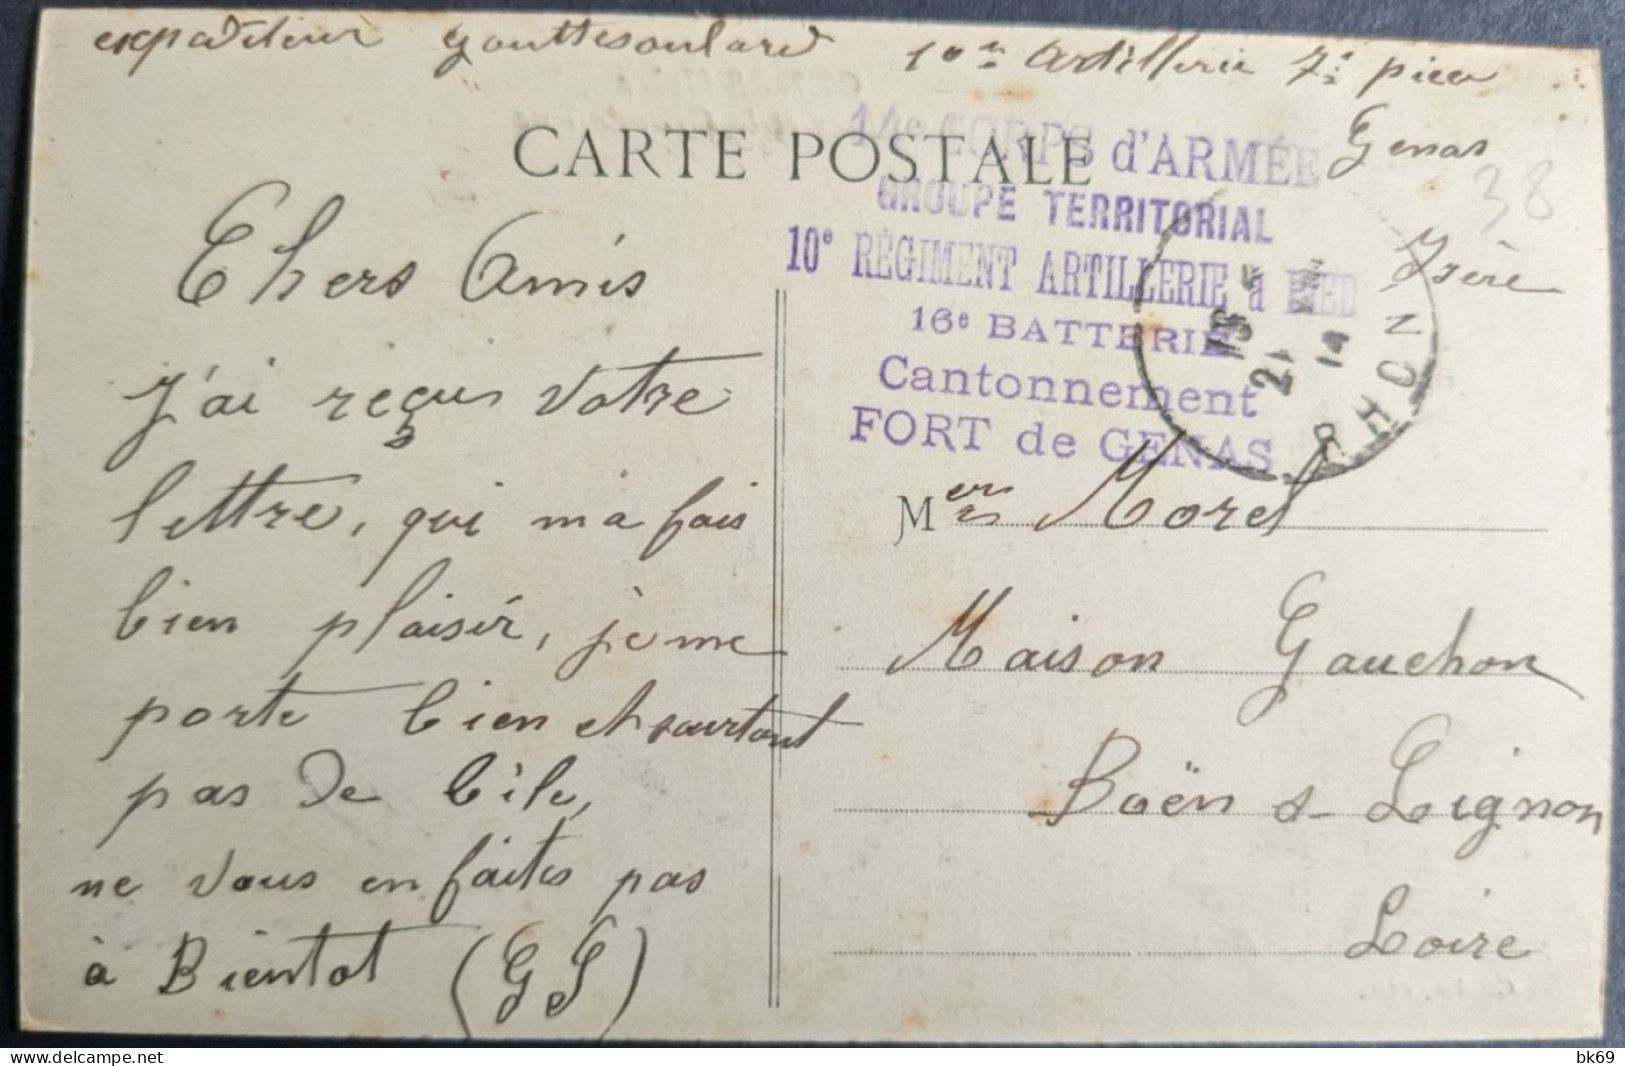 expediteur Gouttesoulard 10me Artillerie 7e piece
Genas
Isère
38
CARTE POSTALE
14e CORPS d'ARMÉE
GROUPE TERRITORIAL
10e RÉGIMENT ARTILLERIE à PIED
16e BATTERIE
Cantonnement
FORT de GENAS
21
14
RHONE
Chers Amis
J'ai reçus votre
lettre, qui m'a fais
bien plaisir, je me
porte bien et surtout
pas de bile,
ne vous en faites pas
à Bientot (GS)
Mers Morel
Maison Gauchon
Boën s- Lignon
Loire
delcampe.net
bk69